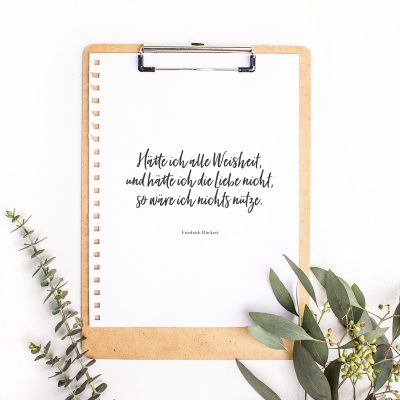 Hätte ich alle Weisheit,
und hätte ich die Liebe nicht,
so wäre ich nichts nütze.
Friedrich Rückert